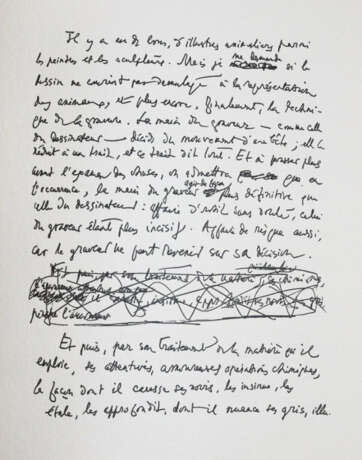 Il y a eu de bons, d'illustres animaliers parmi
les peintres et les sculpteurs. Mais je me demande si le
dessin ne convient pas davantage à la représentation
des animaux, et plus encore, finalement, la techni-
que de la gravure. La main du graveur — comme celle
du dessinateur — décide du mouvement d'une bête ; elle
réduit à un trait, et ce trait dit tout. Et à pousser plus
avant l'examen des choses, on admettra que en
l'occurrence, la main du graveur agit de façon plus définitive que
celle du dessinateur : affaire d'outil sans doute, celui
du graveur étant plus incisif. Affaire de risque aussi,
car le graveur ne peut revenir sur sa décision.
Et puis, par son traitement de la matière
Et puis, par son traitement de la matière qu'il
emploie, ses attentives, amoureuses opérations chimiques,
la façon dont il creuse ses noirs, les insinue, les
étale, les approfondit, dont il nuance ses gris, elle